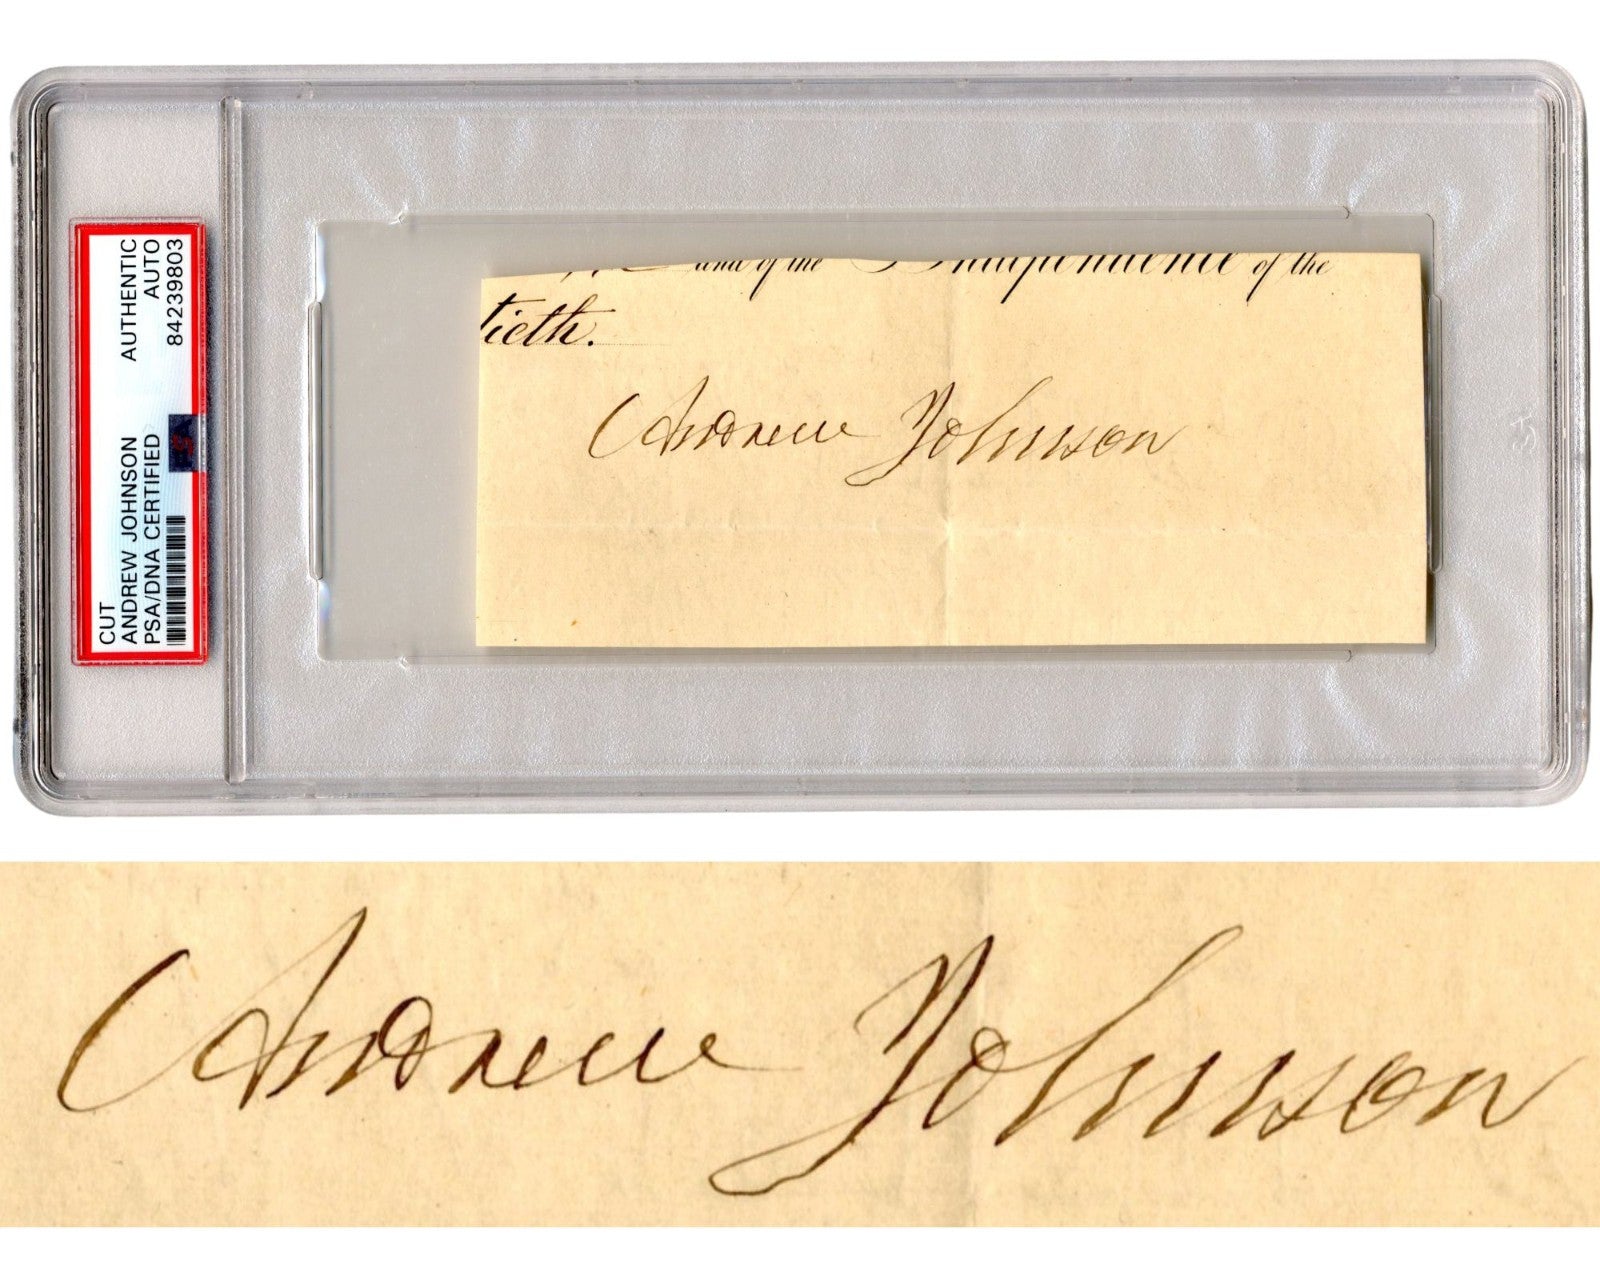 CUT AUTHENTIC
ANDREW JOHNSON AUTO
PSA/DNA CERTIFIED 84239803
PSA
and of the Independence of the
tieth.
Andrew Johnson
Andrew Johnson